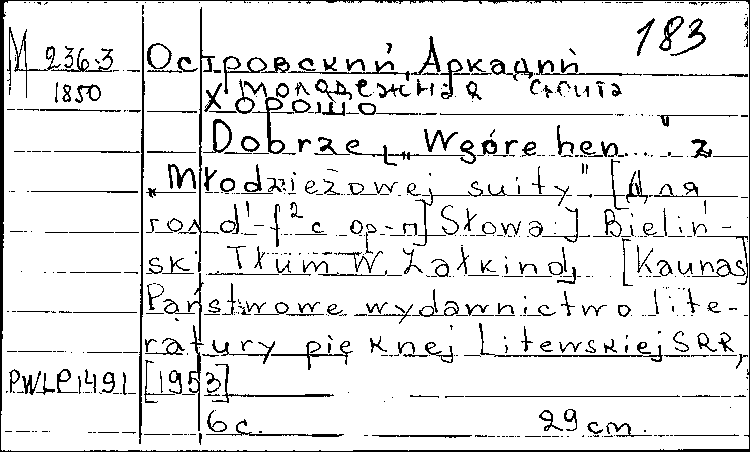 183
M 236.3 Островский, Аркадий
1850 Молодежная сюита
Хорошо
Dobrze ["Wgóre hen..." z
"Młodzieżowej suity". [Для
гол d¹-f² с ор-п] Słowa: J Bieliń-
ski Tłum W. Załkind, [Kaunas]
Państwowe wydawnictwo lite-
ratury pięknej Litewskiej SRR,
PWLP 1491 [1953]
6 с. 29 cm.